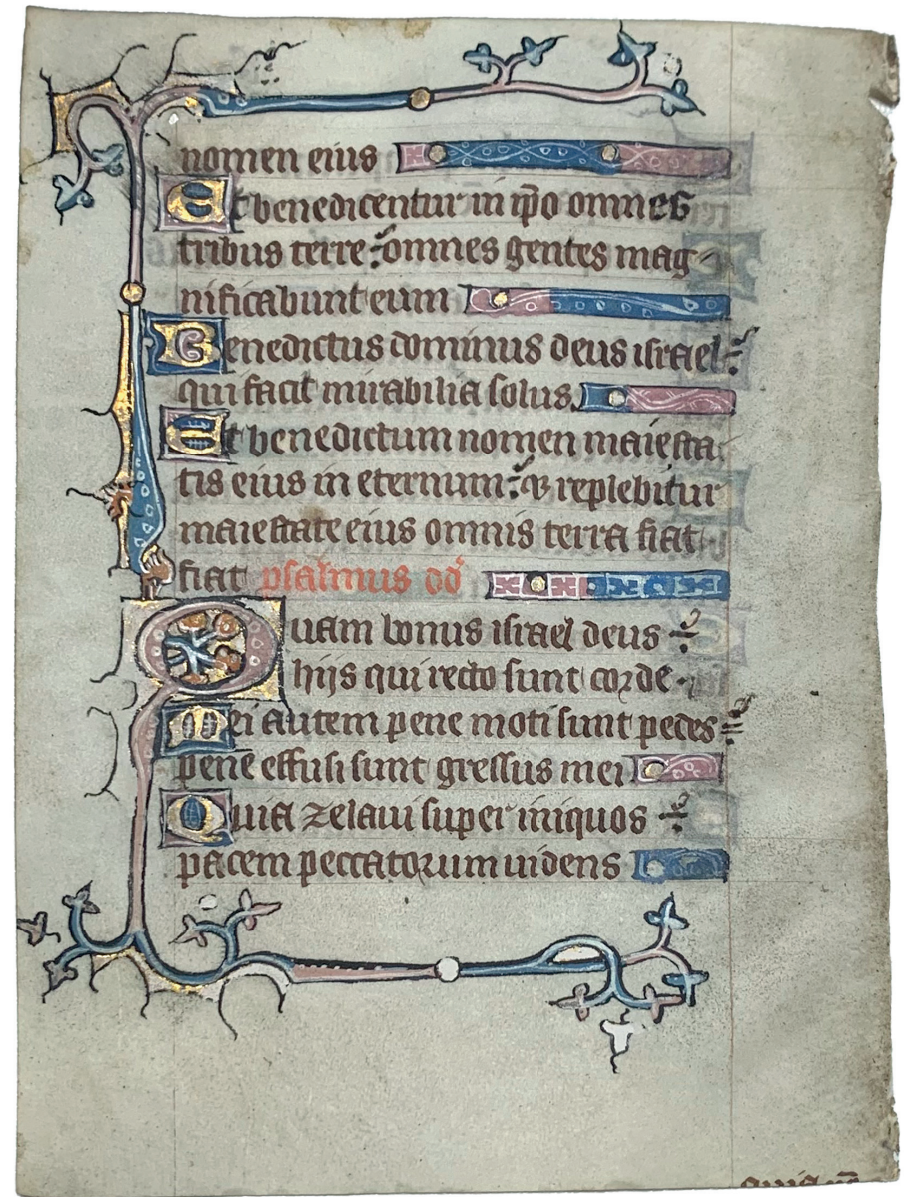 nomen eius
Et benedicentur in ip̄o omnes
tribus terre : omnes gentes mag
nificabunt eum
Benedictus dominus deus israel :
qui facit mirabilia solus.
Et benedictum nomen maiesta
tis eius in eternum : & replebitur
maiestate eius omnis terra fiat
fiat psalmus dd̄
Quam bonus israel deus :
hijs qui recto sunt corde.
Mei autem pene moti sunt pedes :
pene effusi sunt gressus mei
Quia zelaui super iniquos :
pacem peccatorum uidens